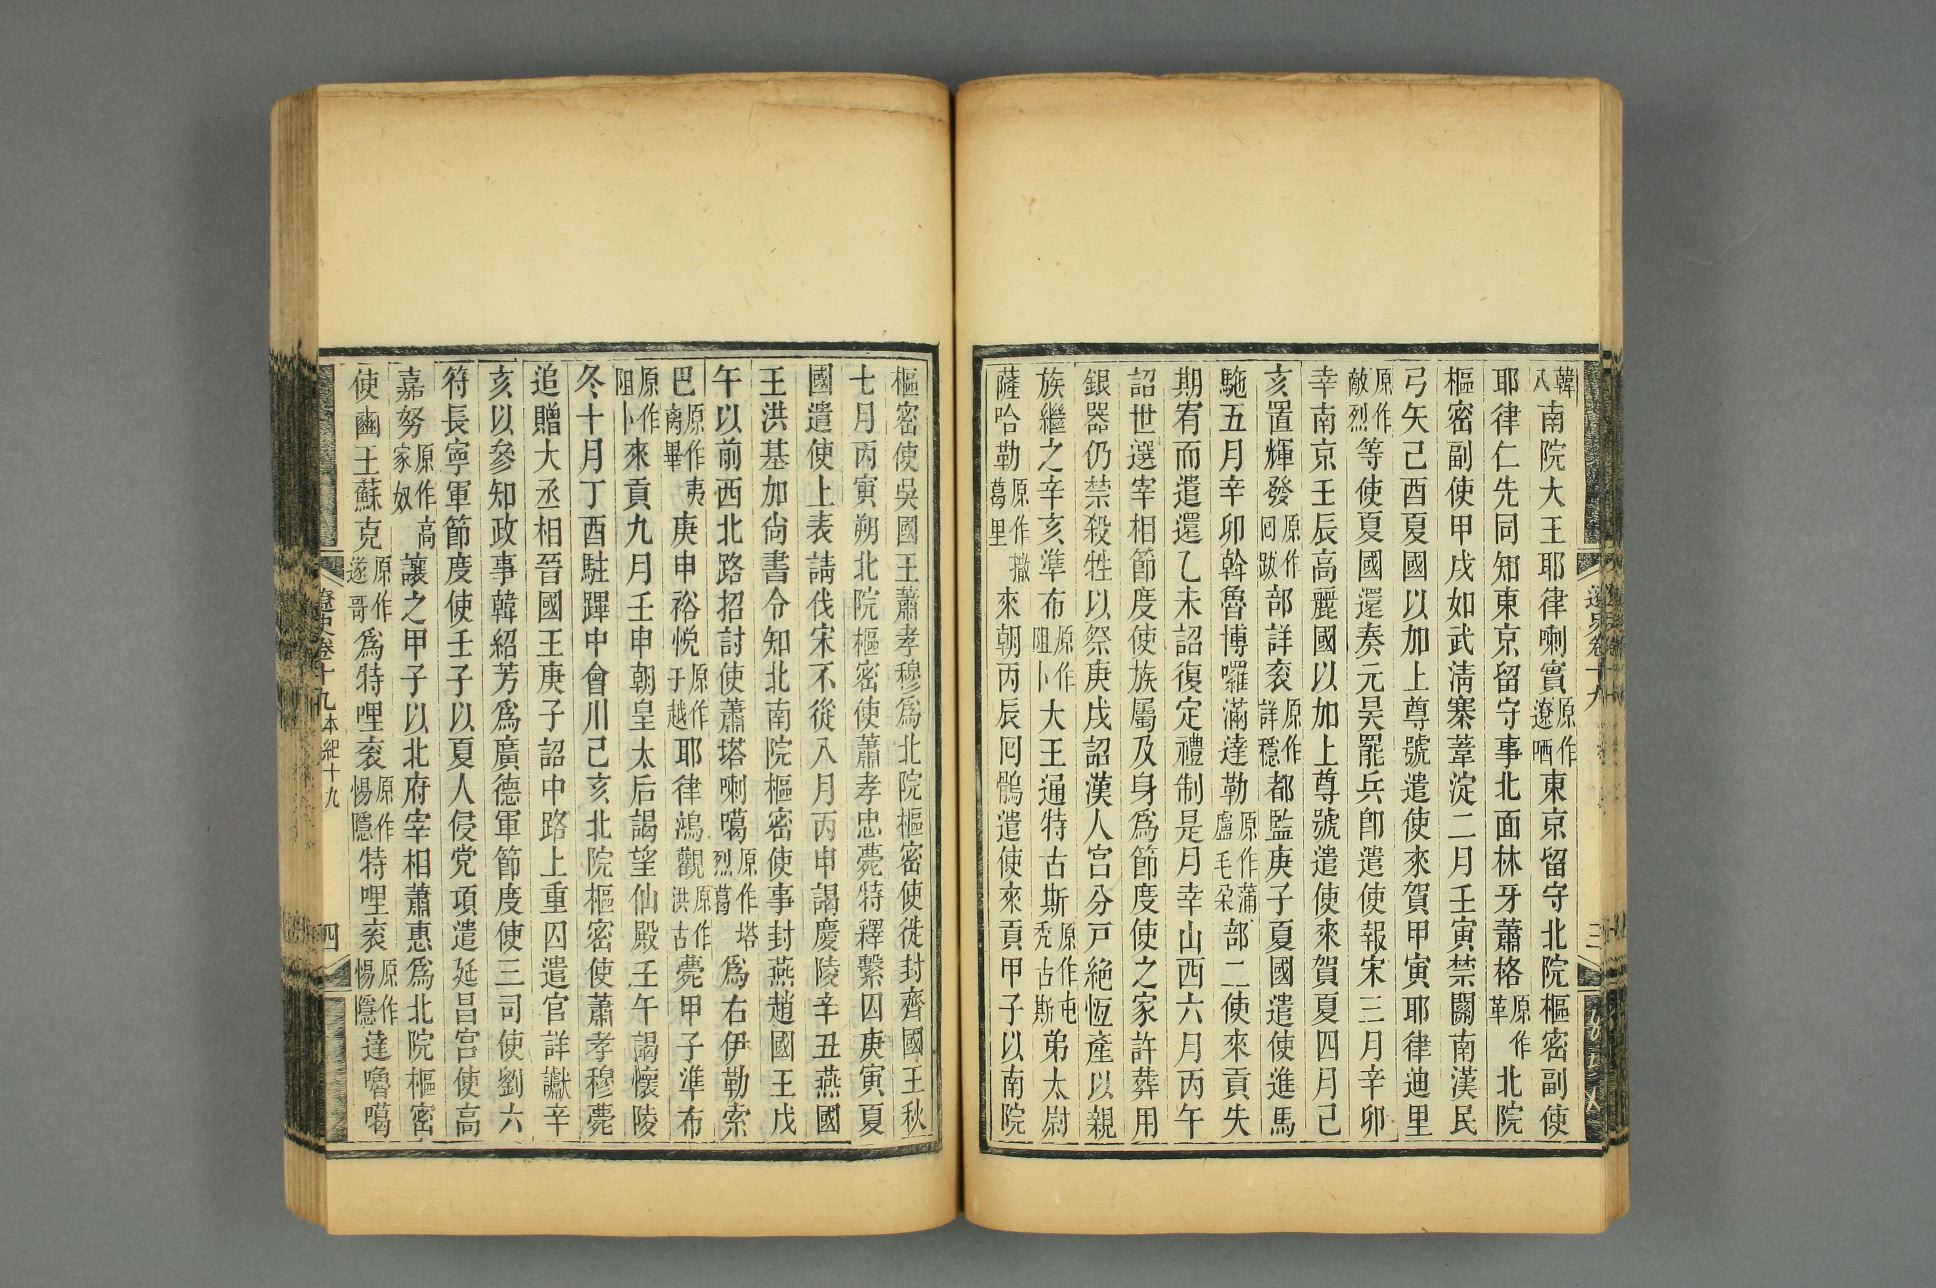 韓八南院大王耶律喇實原作遼哂東京留守北院樞密副使
耶律仁先同知東京留守事北面林牙蕭格原作革北院
樞密副使甲戌如武清寨葦淀二月壬寅禁關南漢民
弓矢己酉夏國以加上尊號遣使來賀甲寅耶律迪里
原作敵烈等使夏國還奏元昊罷兵卽遣使報宋三月辛卯
幸南京壬辰高麗國以加上尊號遣使來賀夏四月己
亥置輝發原作回跋部詳衮原作詳穩都監庚子夏國遣使進馬
駞五月辛卯斡魯博囉滿達勒原作蒲盧毛朵部二使來貢失
期宥而遣還乙未詔復定禮制是月幸山西六月丙午
詔世選宰相節度使族屬及身爲節度使之家許葬用
銀器仍禁殺牲以祭庚戌詔漢人宮分戸絶恆產以親
族繼之辛亥準布原作阻卜大王通特古斯原作屯禿古斯弟太尉
薩哈勒原作撒葛里來朝丙辰囘鶻遣使來貢甲子以南院
遼史卷十九
三
樞密使吳國王蕭孝穆爲北院樞密使徙封齊國王秋
七月丙寅朔北院樞密使蕭孝忠薨特釋繫囚庚寅夏
國遣使上表請伐宋不從八月丙申謁慶陵辛丑燕國
王洪基加尙書令知北南院樞密使事封燕趙國王戊
午以前西北路招討使蕭塔喇噶原作塔烈葛爲右伊勒索
巴原作夷离畢庚申裕悦原作于越耶律鴻觀原作洪古薨甲子準布
原作阻卜來貢九月壬申朝皇太后謁望仙殿壬午謁懷陵
冬十月丁酉駐蹕中會川己亥北院樞密使蕭孝穆薨
追贈大丞相晉國王庚子詔中路上重囚遣官詳讞辛
亥以參知政事韓紹芳爲廣德軍節度使三司使劉六
符長寧軍節度使壬子以夏人侵党項遣延昌宮使高
嘉努原作高家奴讓之甲子以北府宰相蕭惠爲北院樞密
使豳王蘇克原作遂哥爲特哩衮原作惕隱特哩衮原作惕隱達嚕噶
遼史卷十九 本紀十九
四